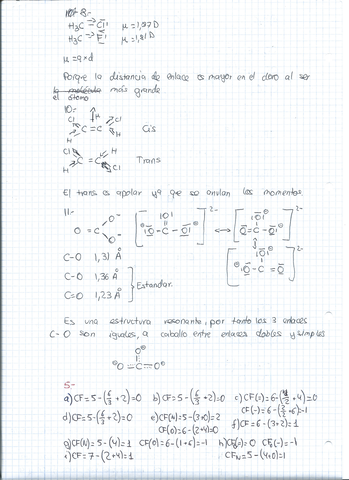 8.-
H₃C → Cl μ = 1,87 D
H₃C → F μ = 1,81 D
μ = q × d
Porque la distancia de enlace es mayor en el cloro al ser
el átomo más grande
10.-
Cl μ Cl
C = C Cis
H H
Cl H
C = C Trans
H Cl
El trans es apolar ya que se anulan los momentos.
11.-
O = C O⁻ O⁻ [|O| ⊖|O-C-O|⊖]²⁻ ↔ [|O|⊖ O=C-O|⊖]²⁻
[|O|⊖ ⊖|O-C=O]²⁻
C-O 1,31 Å
C-O 1,36 Å
C=O 1,23 Å } Estandar.
Es una estructura resonante, por tanto los 3 enlaces
C-O son iguales, a caballo entre enlaces dobles y simples
O⊖
⊖O=C=O⊖
5.-
a) CF = 5-(6/3+2)=0 b) CF = 5-(6/3+2)=0 c) CF(0)=6-(4/2+4)=0
CF(-)=6-(2/2+6)=-1
d) CF = 5-(6/3+2)=0 e) CF(N)=5-(3+0)=2 f) CF = 6-(3+2)=1
CF(O)=6-(2+4)=0
g) CF(N)=5-(4)=1 CF(O)=6-(1+6)=-1 h) CF(=)=0 CF(-)=-1
i) CF = 7-(2+4)=1 CF_N=5-(4+0)=1